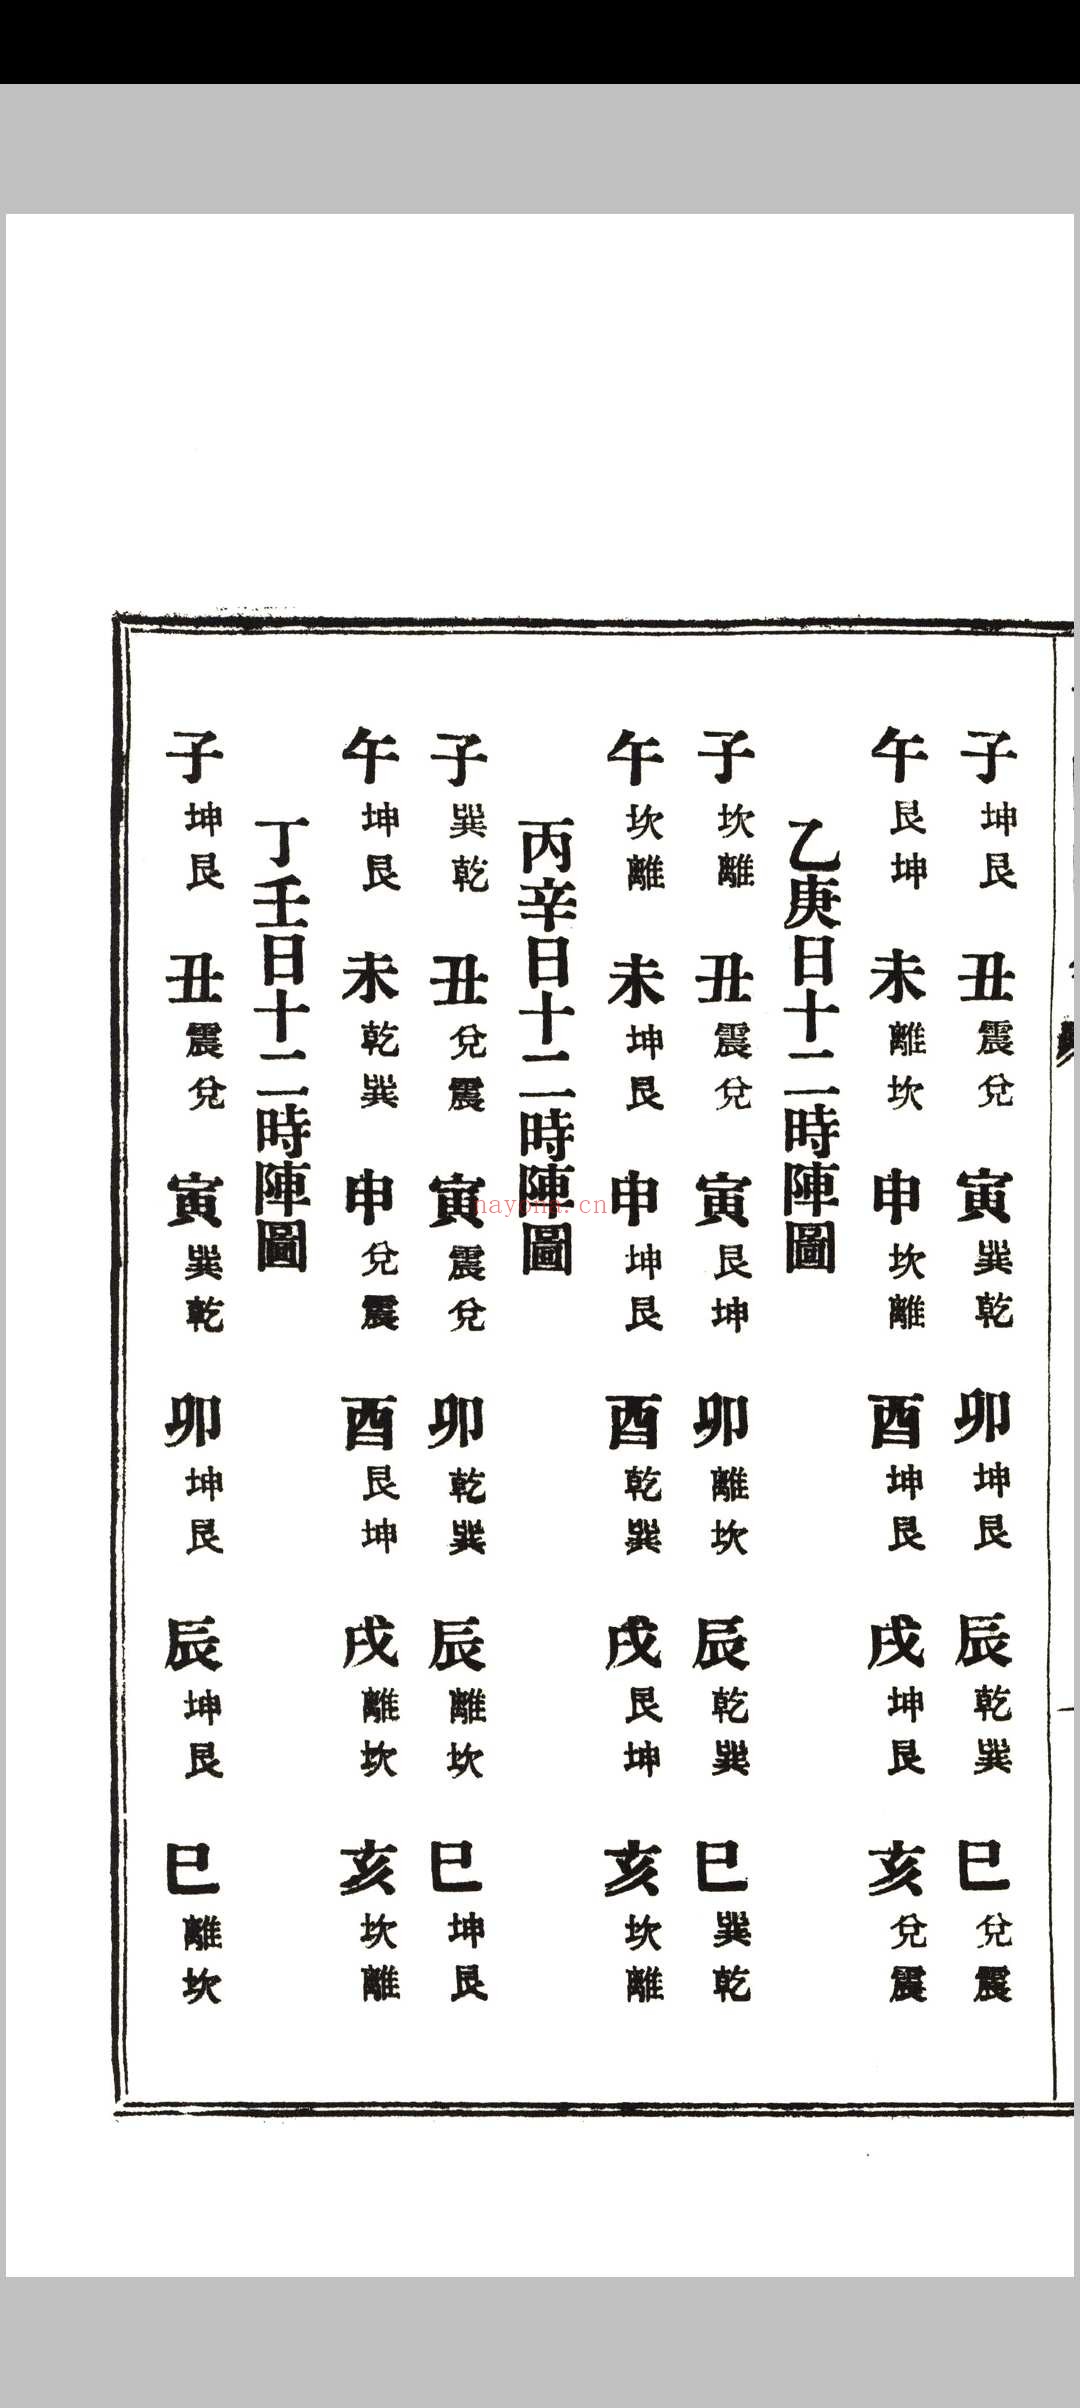 子坤艮 丑震兌 寅巽乾 卯坤艮 辰乾巽 巳兌震
午艮坤 未離坎 申坎離 酉坤艮 戌坤艮 亥兌震
乙庚日十二時陣圖
子坎離 丑震兌 寅艮坤 卯離坎 辰乾巽 巳巽乾
午坎離 未坤艮 申坤艮 酉乾巽 戌艮坤 亥坎離
丙辛日十二時陣圖
子巽乾 丑兌震 寅震兌 卯乾巽 辰離坎 巳坤艮
午坤艮 未乾巽 申兌震 酉艮坤 戌離坎 亥坎離
丁壬日十二時陣圖
子坤艮 丑震兌 寅巽乾 卯坤艮 辰坤艮 巳離坎
nayona.cn